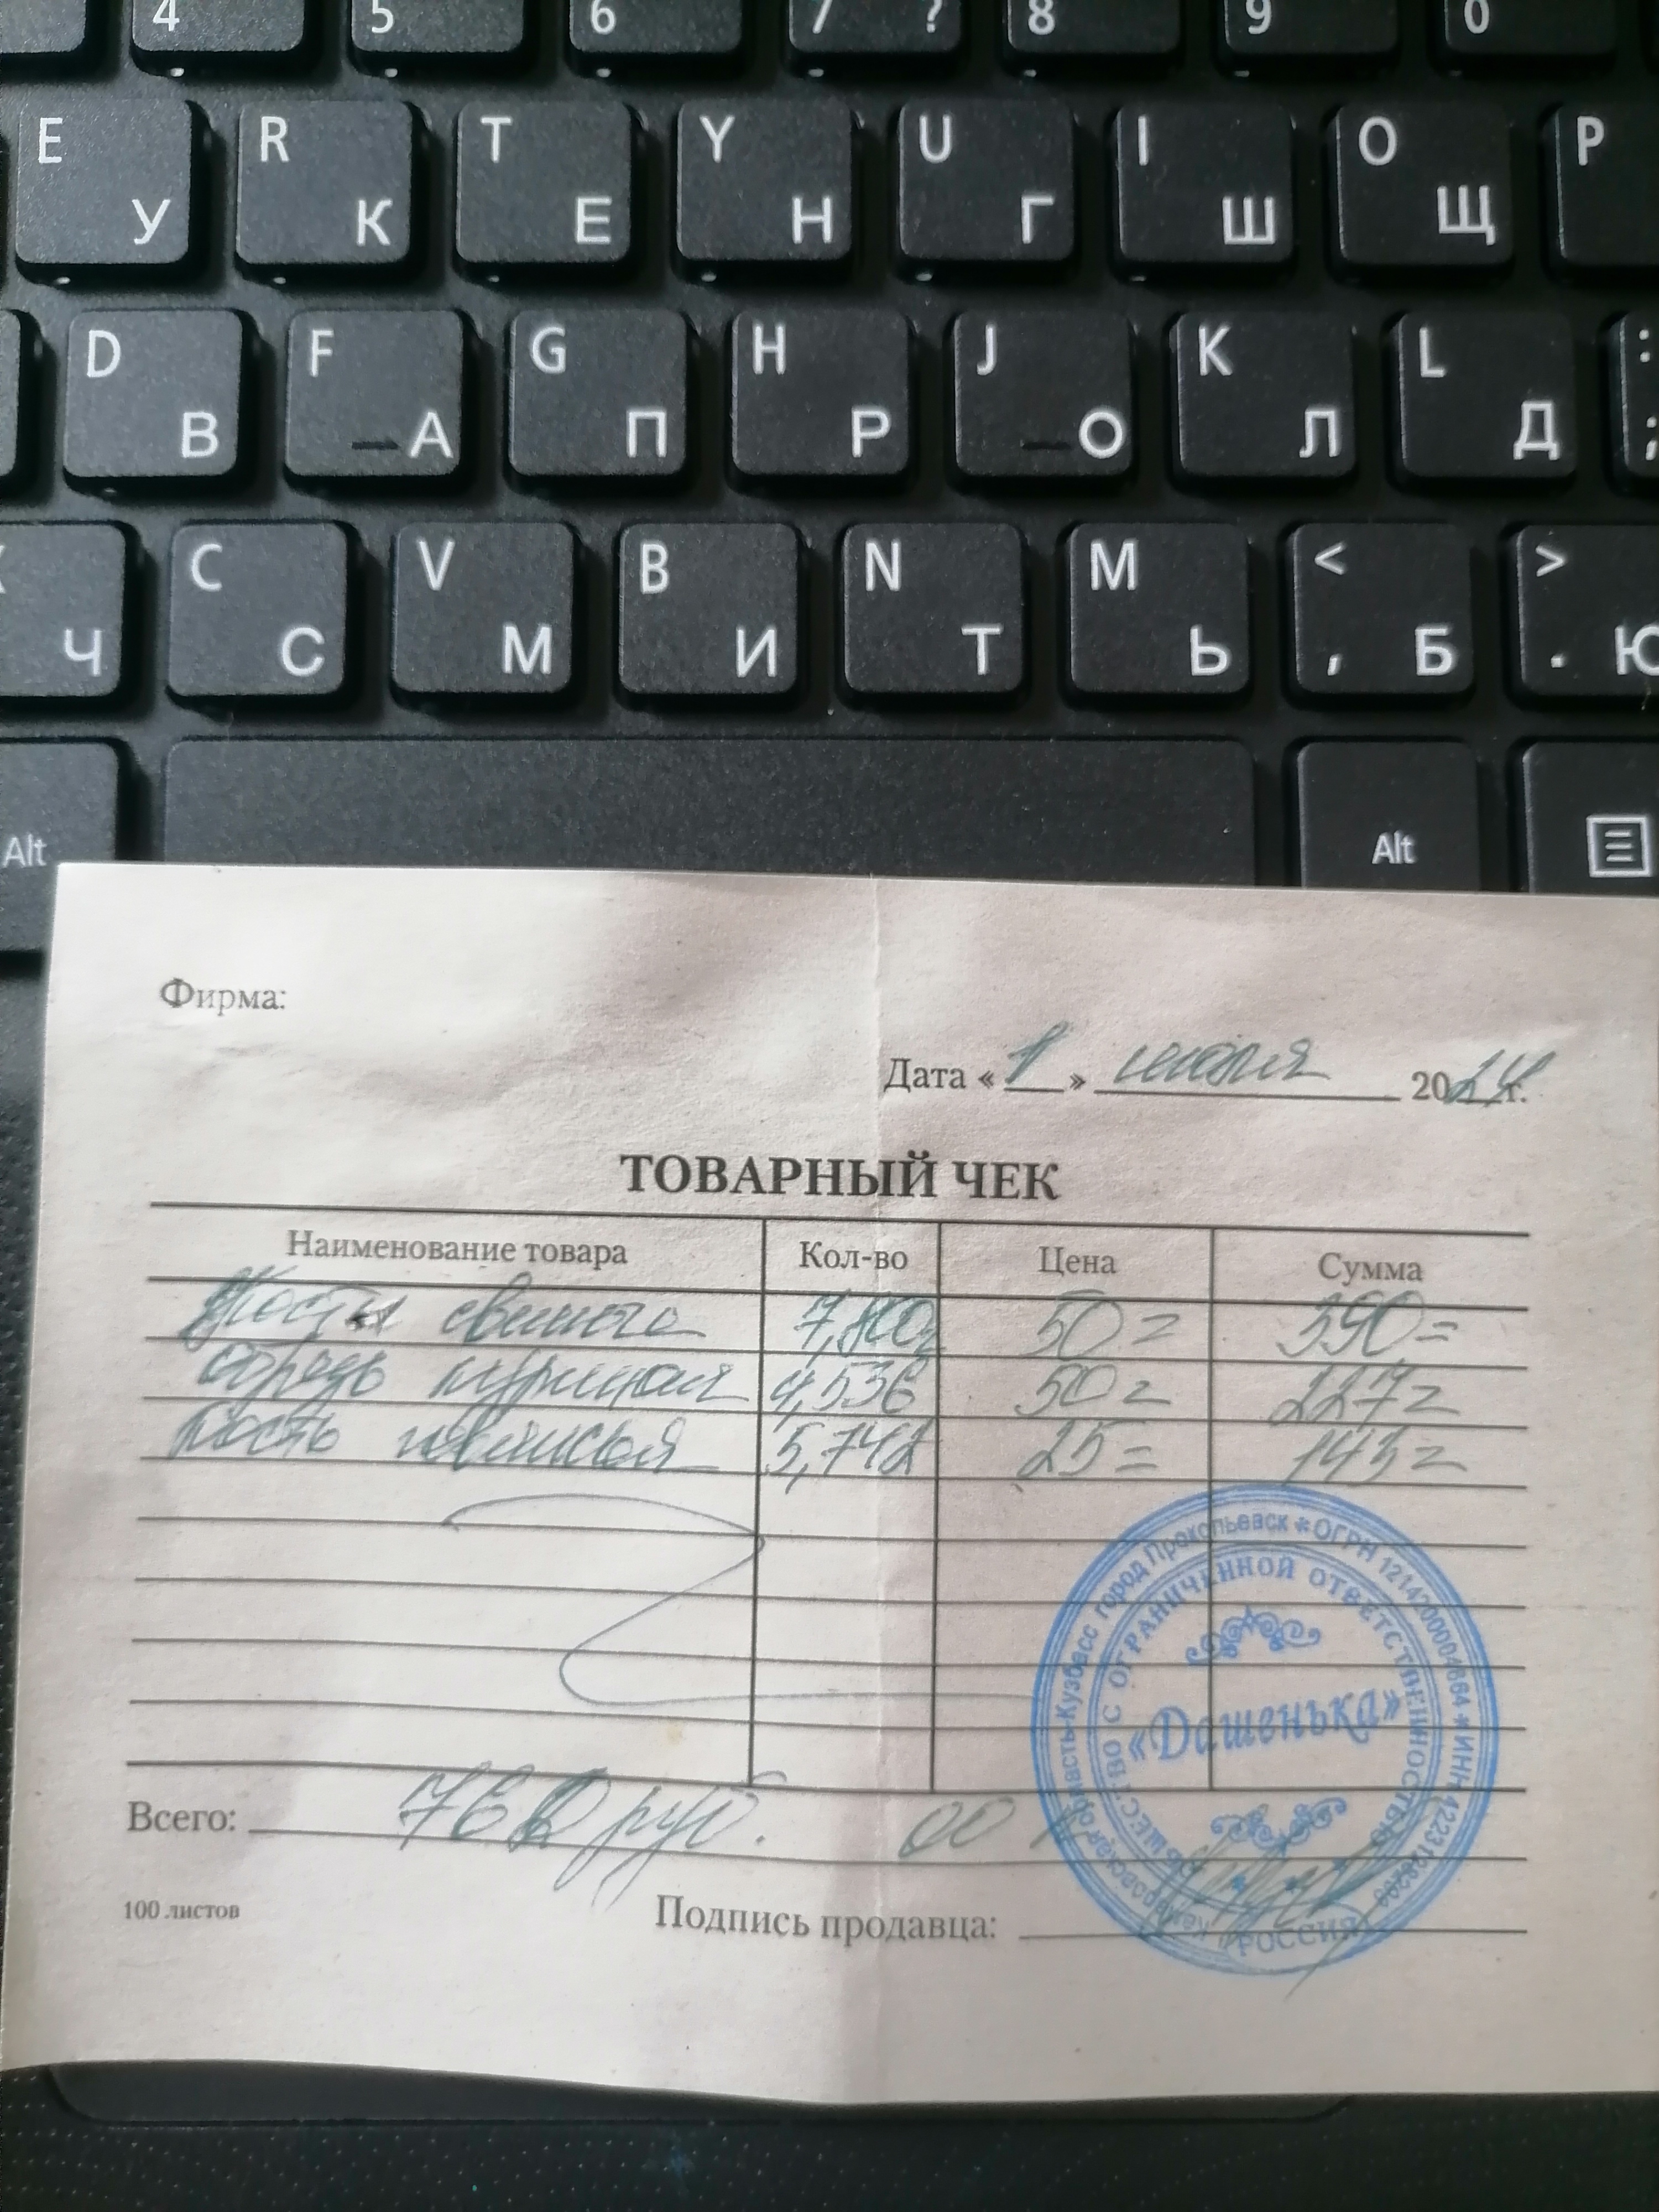 4 5 6 7 ? 8 9 0
E У R К T Е Y Н U Г I Ш O Щ P
D В F А G П H Р J О K Л L Д : ;
Ч C С V М B И N Т M Ь < , Б > . Ю
Alt Alt
Фирма:
Дата «1» июля 2024г.
ТОВАРНЫЙ ЧЕК
Наименование товара Кол-во Цена Сумма
7,800 50= 390=
обрезь куриная 4,536 50= 227=
кость говяжья 5,742 25= 143=
Всего: руб. 00
100 листов
Подпись продавца:
Кемеровская область-Кузбасс город Прокопьевск * ОГРН 1214200004664 * ИНН
ОБЩЕСТВО С ОГРАНИЧЕННОЙ ОТВЕТСТВЕННОСТЬЮ
«Дашенька»
РОССИЯ